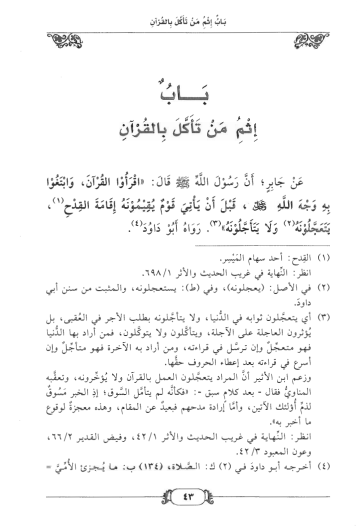 بَابُ إِثْمِ مَنْ تَأَكَّلَ بِالقُرْآنِ
بَـــابُ
إِثْمِ مَنْ تَأَكَّلَ بِالقُرْآنِ
عَنْ جَابِرٍ؛ أَنَّ رَسُولَ اللَّهِ ﷺ قَالَ: «اقْرَأُوا القُرْآنَ، وَابْتَغُوا
بِهِ وَجْهَ اللَّهِ ﷻ، قَبْلَ أَنْ يَأْتِيَ قَوْمٌ يُقِيمُونَهُ إِقَامَةَ القِدْحِ(١)،
يَتَعَجَّلُونَهُ(٢) وَلَا يَتَأَجَّلُونَهُ»(٣). رَوَاهُ أَبُو دَاوُدَ(٤).
(١) القِدح: أحد سهام المَيْسِر.
انظر: النّهاية في غريب الحديث والأثر ٦٩٨/١.
(٢) في الأصل: (يعجلونه)، وفي (ط): يستعجلونه، والمثبت من سنن أبي
داود.
(٣) أي يتعجَّلون ثوابه في الدُّنيا، ولا يتأجَّلونه بطلب الأجر في العُقبى، بل
يُؤثرون العاجلة على الآجلة، ويتأكَّلون ولا يتوكَّلون، فمن أراد بها الدُّنيا
فهو متعجِّلٌ وإن ترسَّل في قراءته، ومن أراد به الآخرة فهو متأجِّلٌ وإن
أسرع في قراءته بعد إعطاء الحروف حقَّها.
وزعم ابن الأثير أنَّ المراد يتعجَّلون العمل بالقرآن ولا يُؤخِّرونه، وتعقَّبه
المناويُّ فقال - بعد كلامٍ سبق -: «فكأنَّه لم يتأمَّل السَّوق؛ إذ الخبر مَسُوقٌ
لذمِّ أولئك الآتين، وأمَّا إرادة مدحهم فبعيدٌ عن المقام، وهذه معجزةٌ لوقوع
ما أخبر به».
انظر: النّهاية في غريب الحديث والأثر ٤٢/١، وفيض القدير ٦٦/٢،
وعون المعبود ٤٢/٣.
(٤) أخرجه أبو داودَ في (٢) ك: الصَّلاة، (١٣٤) ب: ما يُجزئ الأُمِّيَّ =
٤٣